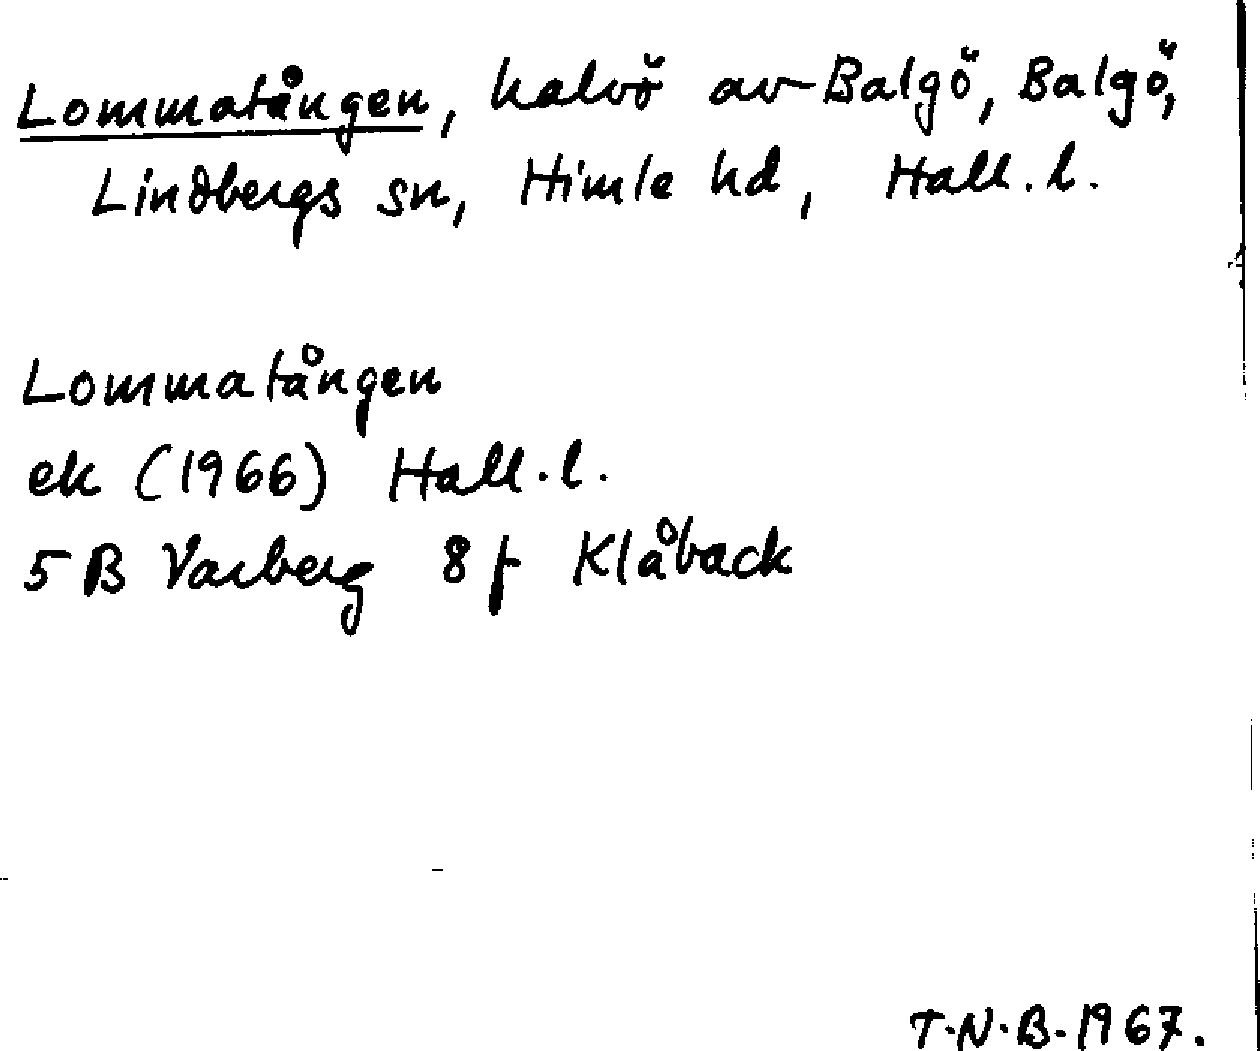 Lommatången, halvö av Balgö, Balgö,
Lindbergs sn, Himle hd, Hall. l.
Lommatången
ek (1966) Hall. l.
5 B Varberg 8 f Klåback
T.N.B. 1967.